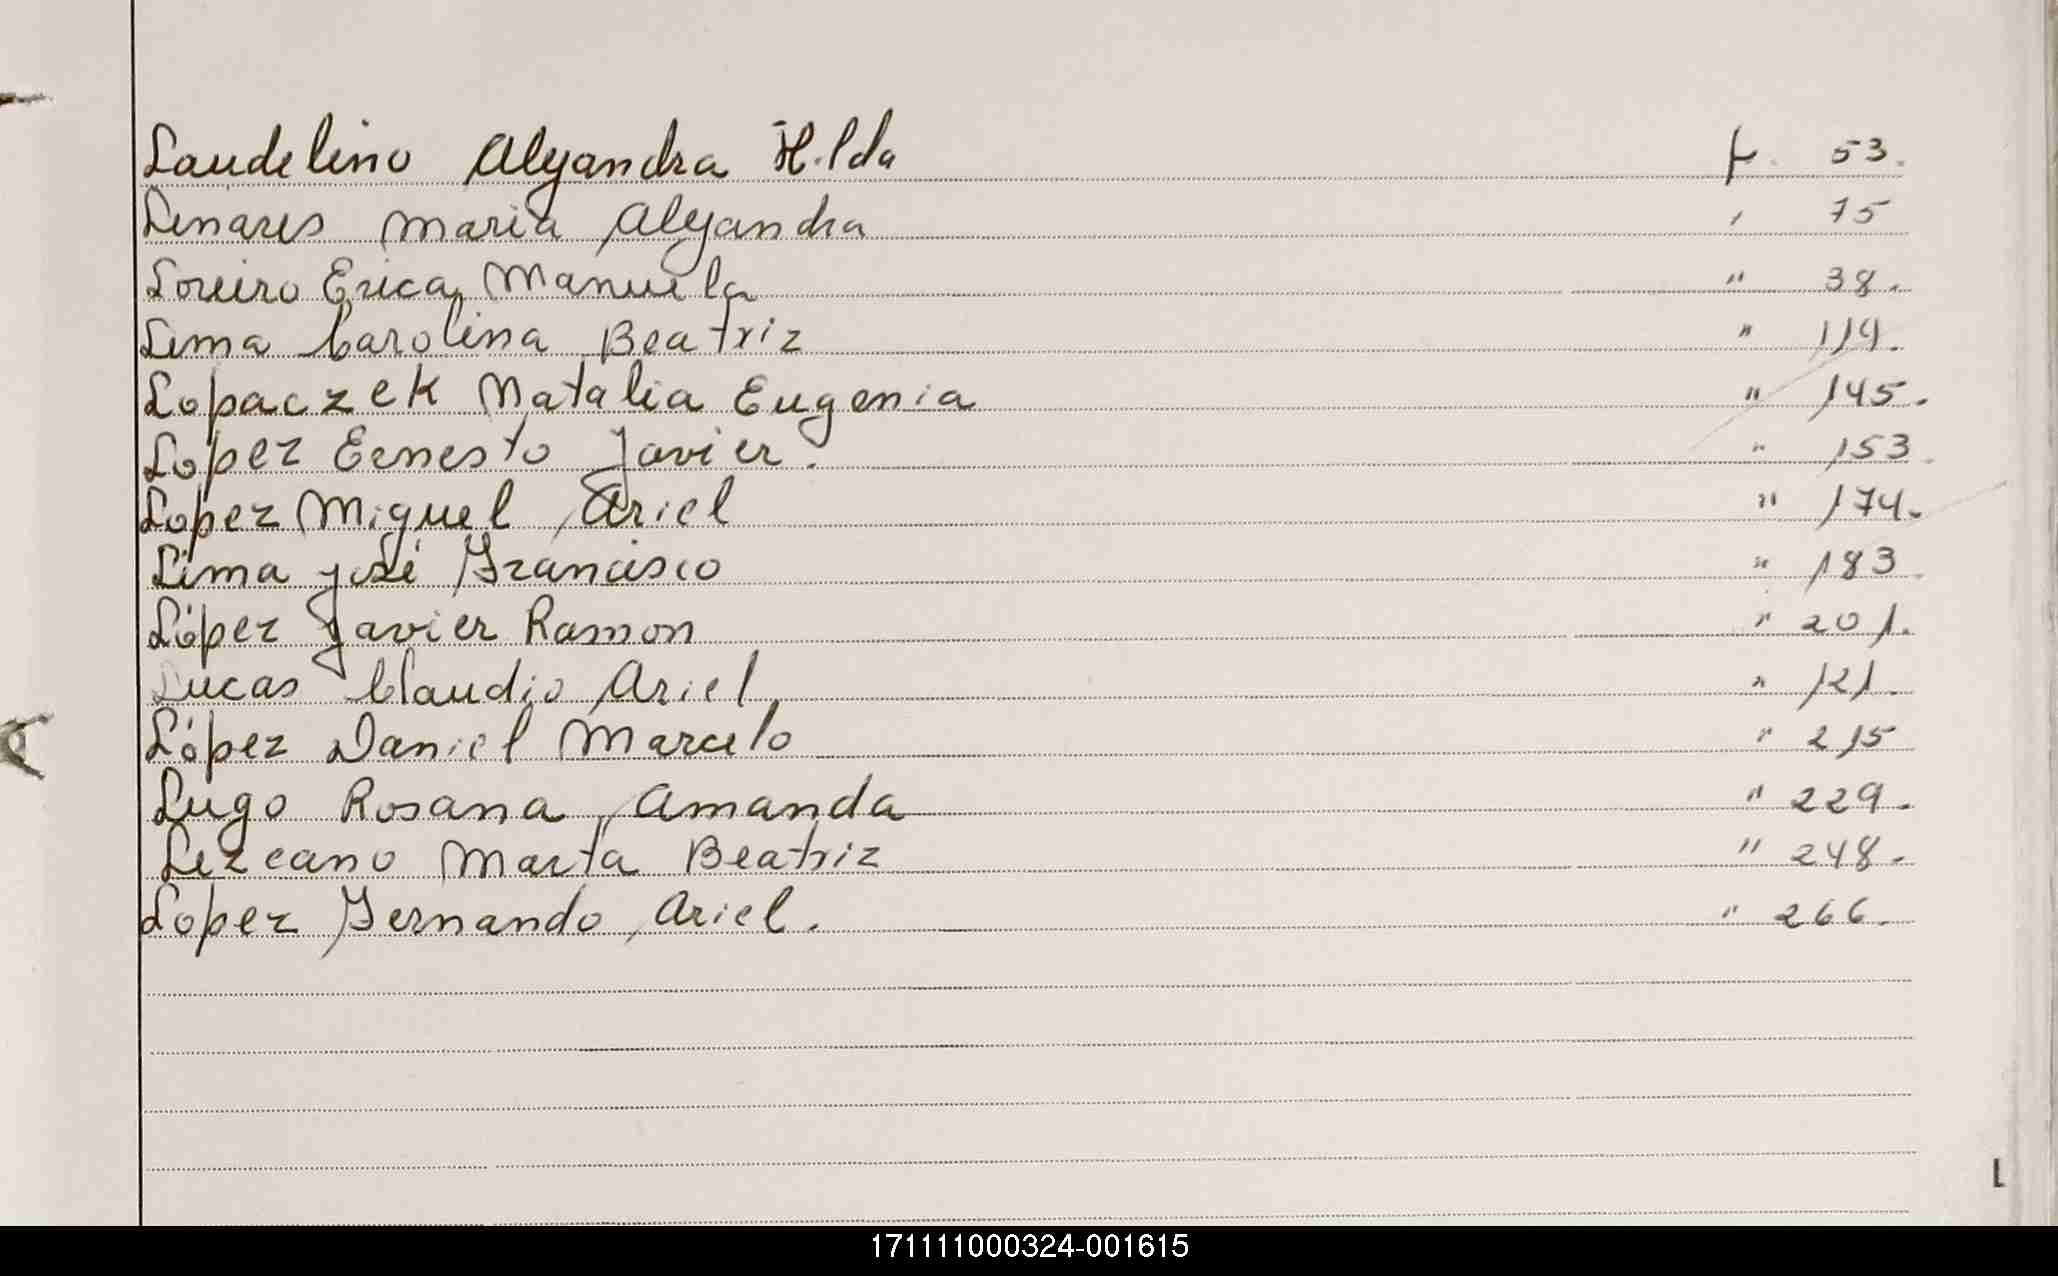 Laudelino Alejandra Hilda f. 53.
Linares Maria Alejandra " 75
Loreiro Erica Manuela " 38.
Lima Carolina Beatriz " 119.
Lopaczek Natalia Eugenia " 145.
Lopez Ernesto Javier. " 153.
Lopez Miguel Ariel " 174.
Lima José Francisco " 183.
López Javier Ramon " 201.
Lucas Claudio Ariel " 121.
López Daniel Marcelo " 215
Lugo Rosana Amanda " 229.
Lezcano Marta Beatriz " 248.
Lopez Fernando Ariel. " 266.
L
171111000324-001615